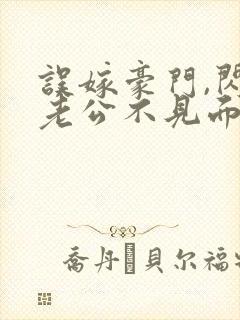 誤嫁豪門,閃
老公不見而
喬丹·貝尔福